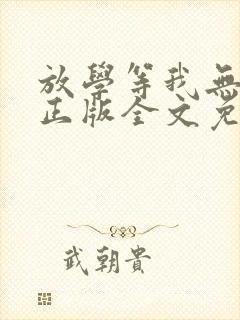 放學等我無
正版全文免
武朝貴